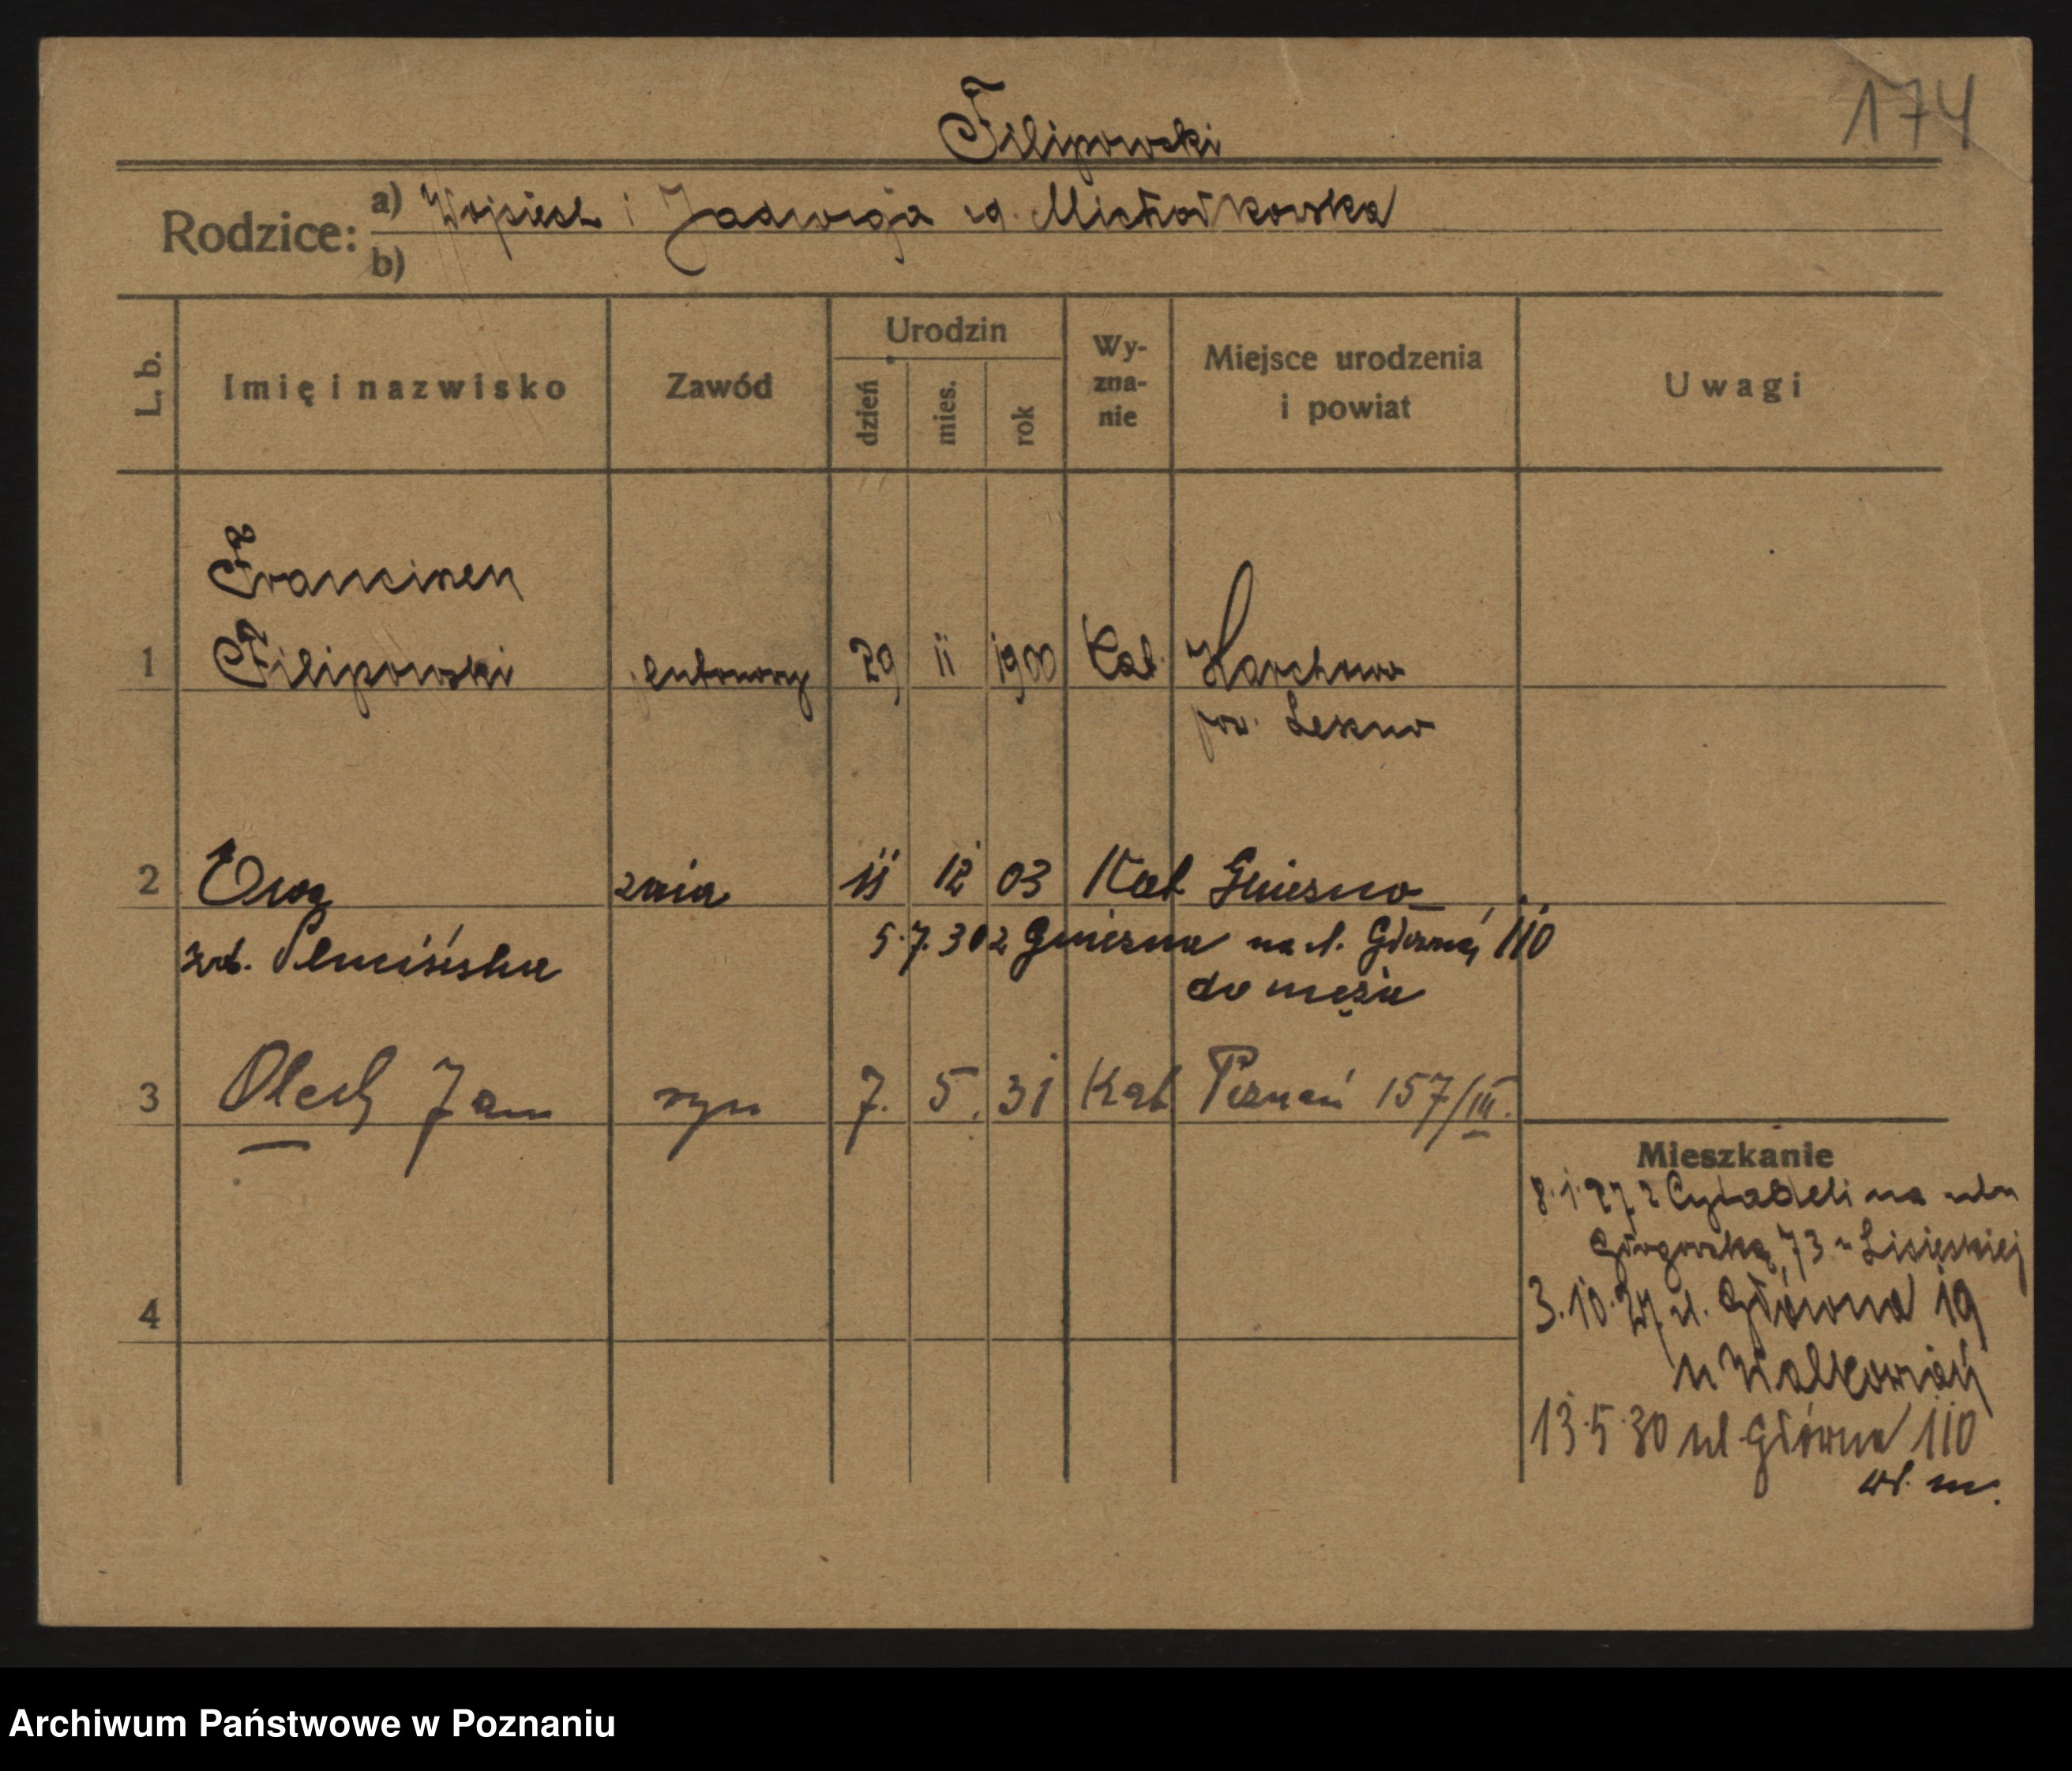 174
Filipowski
Rodzice: a) Wojciech i Jadwiga zd. Michałkowska
b)
L. b.
Imię i nazwisko
Zawód
Urodzin
dzień
mies.
rok
Wy-
zna-
nie
Miejsce urodzenia
i powiat
Uwagi
Franciszek
1 Filipowski plutonowy 29 11 1900 Kat.
pow. Leszno
2 Ewa żona 11 12 03 Kat Gniezno
5.7.30 z Gniezna na ul. Główną 110
do męża
3 Olech Jan syn 7. 5. 31 Kat Poznań 157/III.
4
Mieszkanie
8.1.27 z Cytadeli na
73 u
3.10.27 ul. Główna 19
u
13.5.30 ul Główna 110
wł. m.
Archiwum Państwowe w Poznaniu